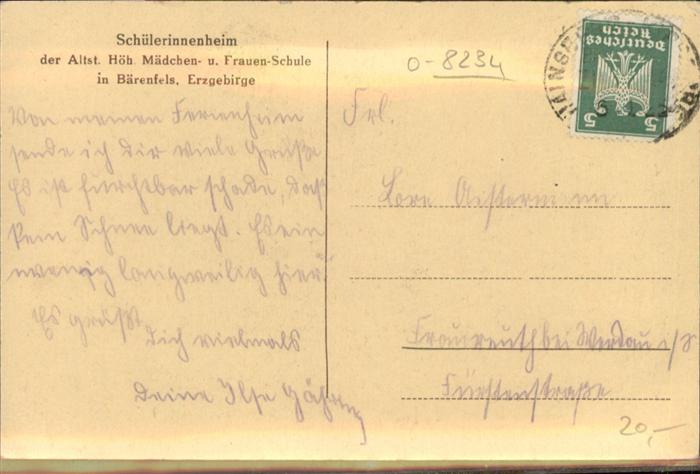 Schülerinnenheim
der Altst. Höh. Mädchen- u. Frauen-Schule
in Bärenfels, Erzgebirge
o-8234
Deutsches
Reich
5 5
Von meinem Ferienheim
sende ich dir viele Grüße
Es ist furchtbar schade, daß
kein Schnee liegt. Es ein
wenig langweilig hier.
Es grüßt
dich vielmals
Deine Ilse
Frl.
Lore
Fraureuth bei Werdau i/S
Fürstenstraße
20,-